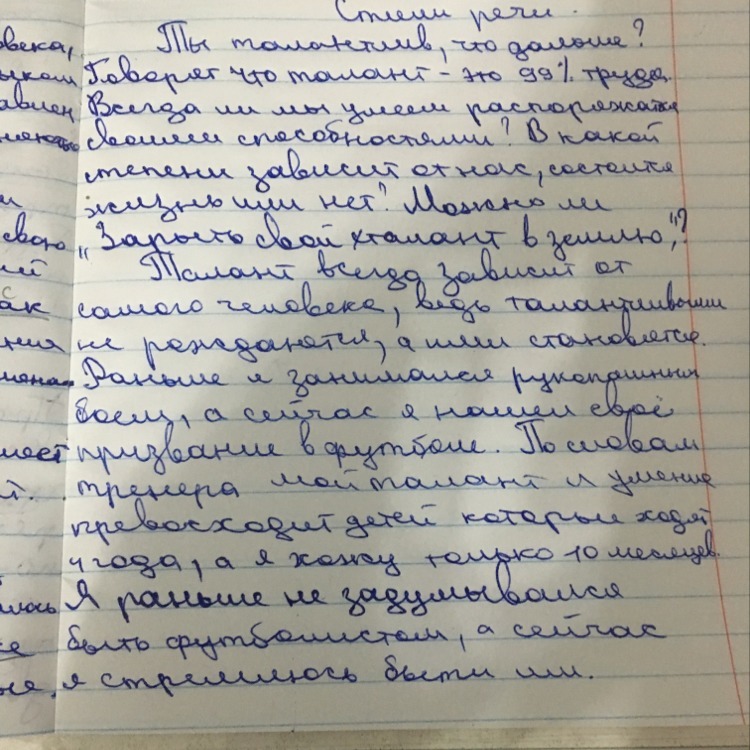 Стили речи.
овека, Ты талантлив, что дальше?
Говорят что талант - это 99% труда.
Всегда ли мы умеем распоряжатся
своими способностями? В какой
степени зависит от нас, состоится
жизнь или нет? Можно ли
свою „Зарыть свой талант в землю"?
ий Талант всегда зависит от
ак самого человека, ведь талантливыми
ния не рождаются, а ими становятся.
Раньше я занимался рукопашным
боем, а сейчас я нашел своё
меет призвание в футболе. По словам
й. тренера мой талант и умение
превосходит детей которые ходят
4 года, а я хожу только 10 месяцев.
илось Я раньше не задумывался
се быть футболистом, а сейчас
я стремлюсь быть им.